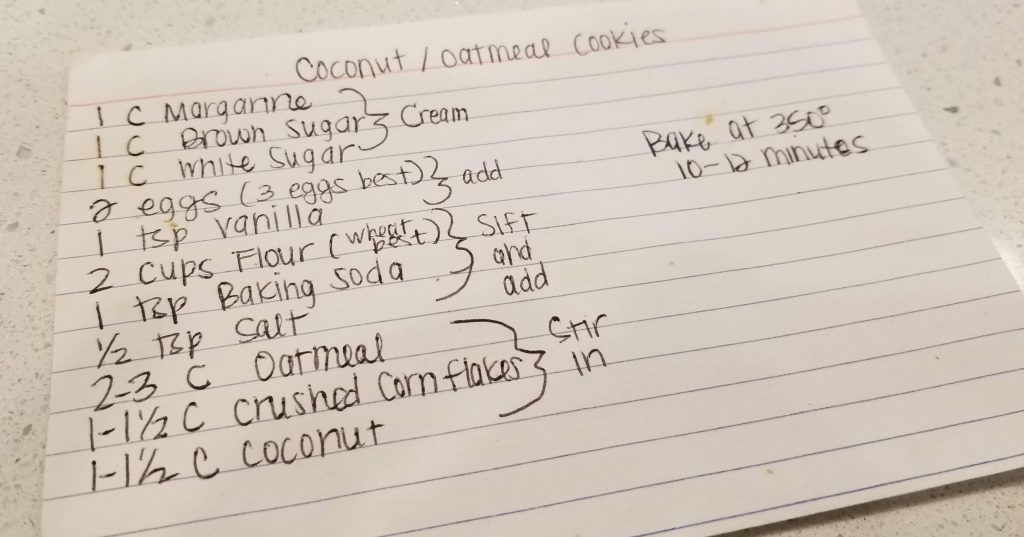 Coconut / oatmeal cookies
1 C Margarine
1 C Brown sugar } Cream
1 C white sugar
2 eggs (3 eggs best) } add
1 tsp vanilla
2 cups Flour (wheat best) } Sift
1 tsp Baking soda and
½ tsp salt add
2-3 C Oatmeal
1-1½ C crushed Cornflakes } Stir in
1-1½ C coconut
Bake at 350°
10-12 minutes